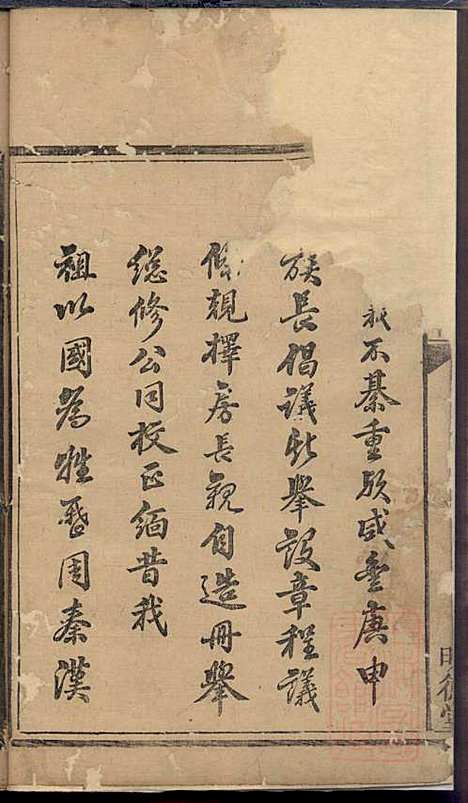 不綦重歟咸豐庚申
族長倡議斯舉設章程議
條規擇房長親自造冊舉
總修公同校正緬昔我
祖以國為姓歷周秦漢